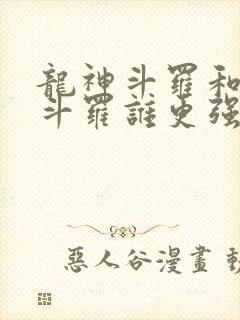 龍神斗羅和
斗羅誰更强
惡人谷漫畫